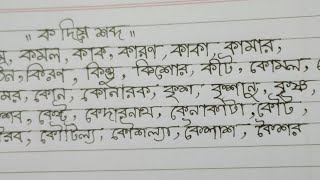 " ক দিয়ে শব্দ "
কমল, কাক, কারণ, কাকা, কামার,
কিরণ, কিন্তু, কিশোর, কীট, কোমল,
কেনে, কোনারক, কৃশ, কৃশানু, কৃষ্ণ,
কেষ্ট, কেদারনাথ, কেনাকাটা, কোটি
কৌটিল্য, কৌশল্যা, কৈলাশ, কৈশর